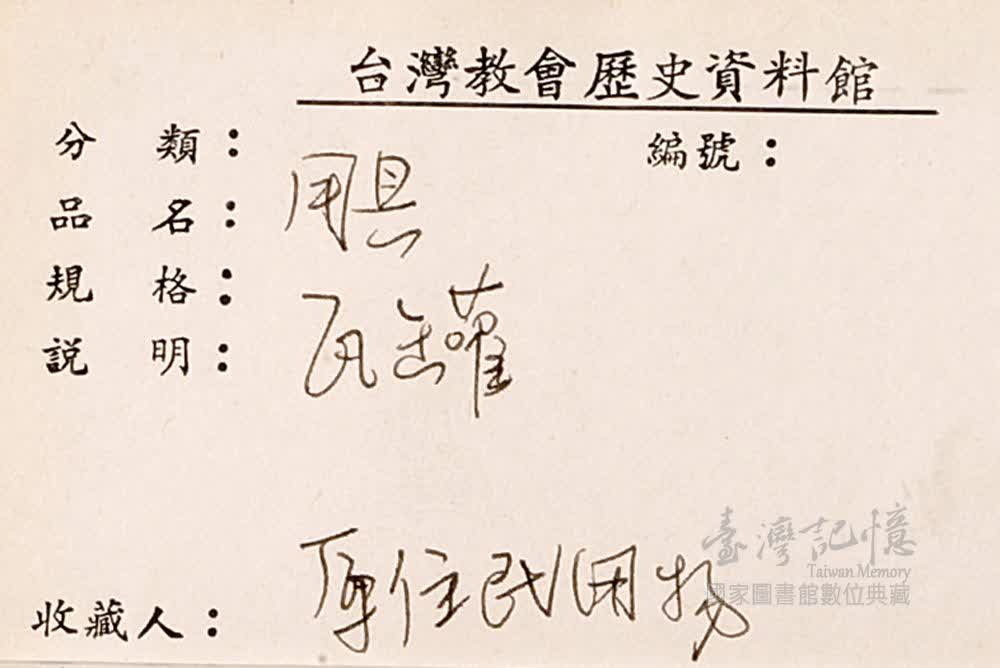 台灣教會歷史資料館
分類：
編號：
用具
品名：
規格：
瓦罐
説明：
原住民用物
收藏人：
臺灣記憶
Taiwan Memory
國家圖書館數位典藏